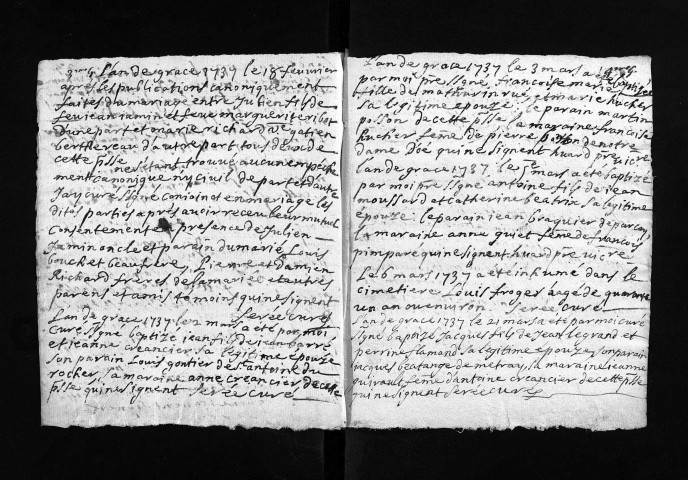 L'an de grace 1737 le 18 feuvrier
apres les publications canoniquement
faites du mariage entre Julien fils de
feu jean jamin et feue marguerite ribot
d'une part et marie richard V. de gatien
berthereau d'autre part tous deux de
cette psse
ne sestant trouve aucun empeche
ment canonique ny civil de part et d'autre
Jay curé signé conjoinct en mariage les
dites parties apres avoir receu leur mutuel
consentement presence de Julien
Jamin oncle et parein du marié Louis
bouchet beaufrere, Pierre et Damien
Richard freres de la mariée et autres
parens et amis temoins qui ne signent
Serée curé
L'an de grace 1737 le 2 mars a eté par moi
curé signé baptizé jean fils de jean barré
et jeanne creancier sa legitime epouze
son parain Louis gontier de st antoine du
rocher sa maraine anne creancier de cette
psse qui ne signent Serée curé
L'an de grace 1737 le 3 mars a eté baptizée
par moi pre ssgné francoise marie
fille de mathurin rué et marie hucher
sa legitime epouze; le parain martin
posson de cette psse la maraine francoise
hucher feme de pierre posson de notre
dame d'oé qui ne signent huard pre vicre
L'an de grace 1737 le 5e mars a eté baptizé
par moi pre ssgné antoine fils de jean
moussard et catherine beatrix sa legitime
epouze: le parain jean braquier de parcay
la maraine anne guiet feme de francois
pimpare qui ne signent huard pre vicre
Le 6 mars 1737 a eté inhumé dans le
cimetiere Louis froger aagé de quarante
un an ou environ Serée curé
L'an de grace 1737 le 21 mars a eté par moi curé
signé baptizé Jacques fils de Jean le grand et
perrine lamand sa legitime epouze, son parain
jacques de metray, sa maraine jeanne
feme d'antoine creancier de cette psse
qui ne signent Serée curé